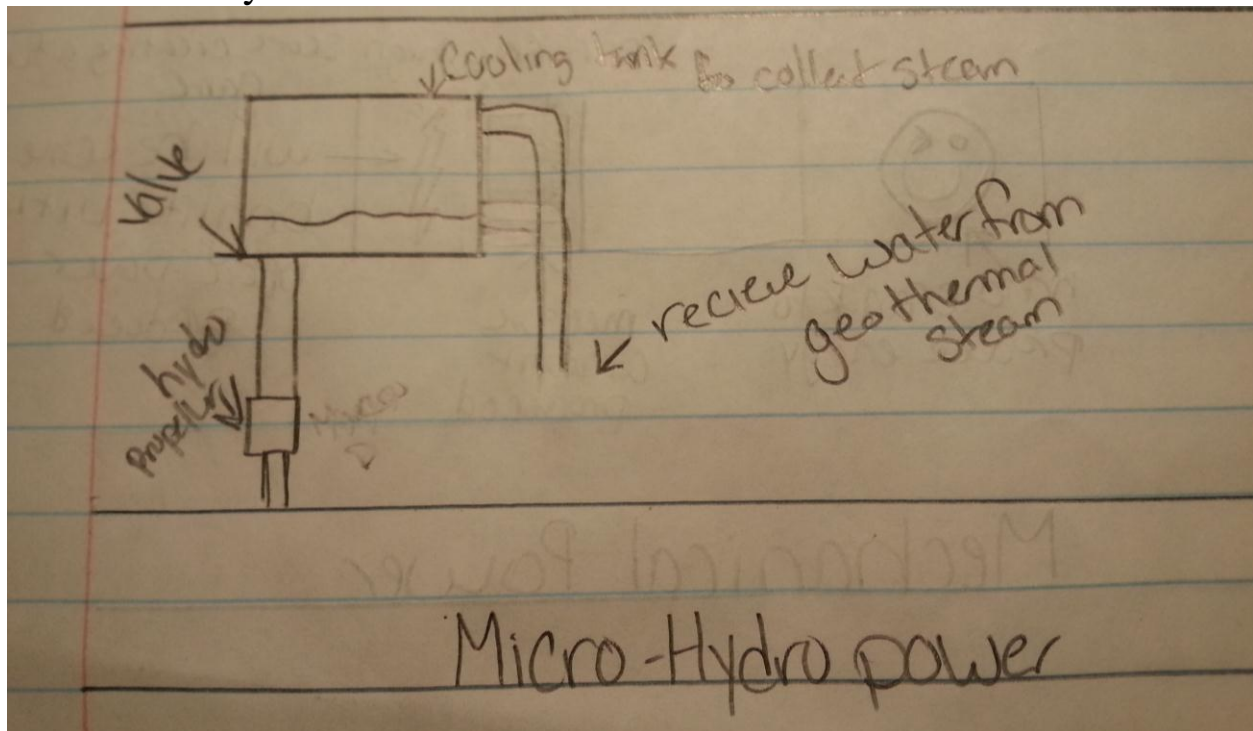 Cooling tank to collect steam
Valve
recieve water from
geothermal
steam
hydo
Propellor
Mechanical Power
Micro-Hydro power